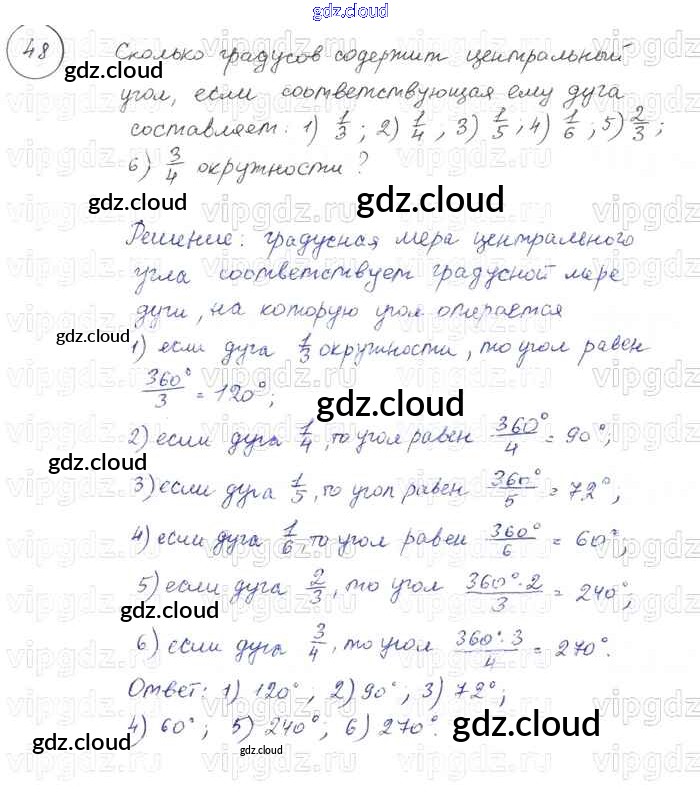 gdz.cloud
48 Сколько градусов содержит центральный
gdz.cloud
угол, если соответствующая ему дуга
составляет: 1) 1/3; 2) 1/4, 3) 1/5; 4) 1/6; 5) 2/3;
6) 3/4 окружности?
gdz.cloud
gdz.cloud
Решение: градусная мера центрального
угла соответствует градусной мере
дуги, на которую угол опирается
gdz.cloud
1) если дуга 1/3 окружности, то угол равен
360°/3 = 120°;
gdz.cloud
2) если дуга 1/4, то угол равен 360°/4 = 90°;
gdz.cloud
3) если дуга 1/5, то угол равен 360°/5 = 72°;
4) если дуга 1/6, то угол равен 360°/6 = 60°;
5) если дуга 2/3, то угол 360°·2/3 = 240°;
gdz.cloud
6) если дуга 3/4, то угол 360°·3/4 = 270°.
Ответ: 1) 120°, 2) 90°; 3) 72°;
gdz.cloud
4) 60°; 5) 240°; 6) 270°.
gdz.cloud
gdz.cloud